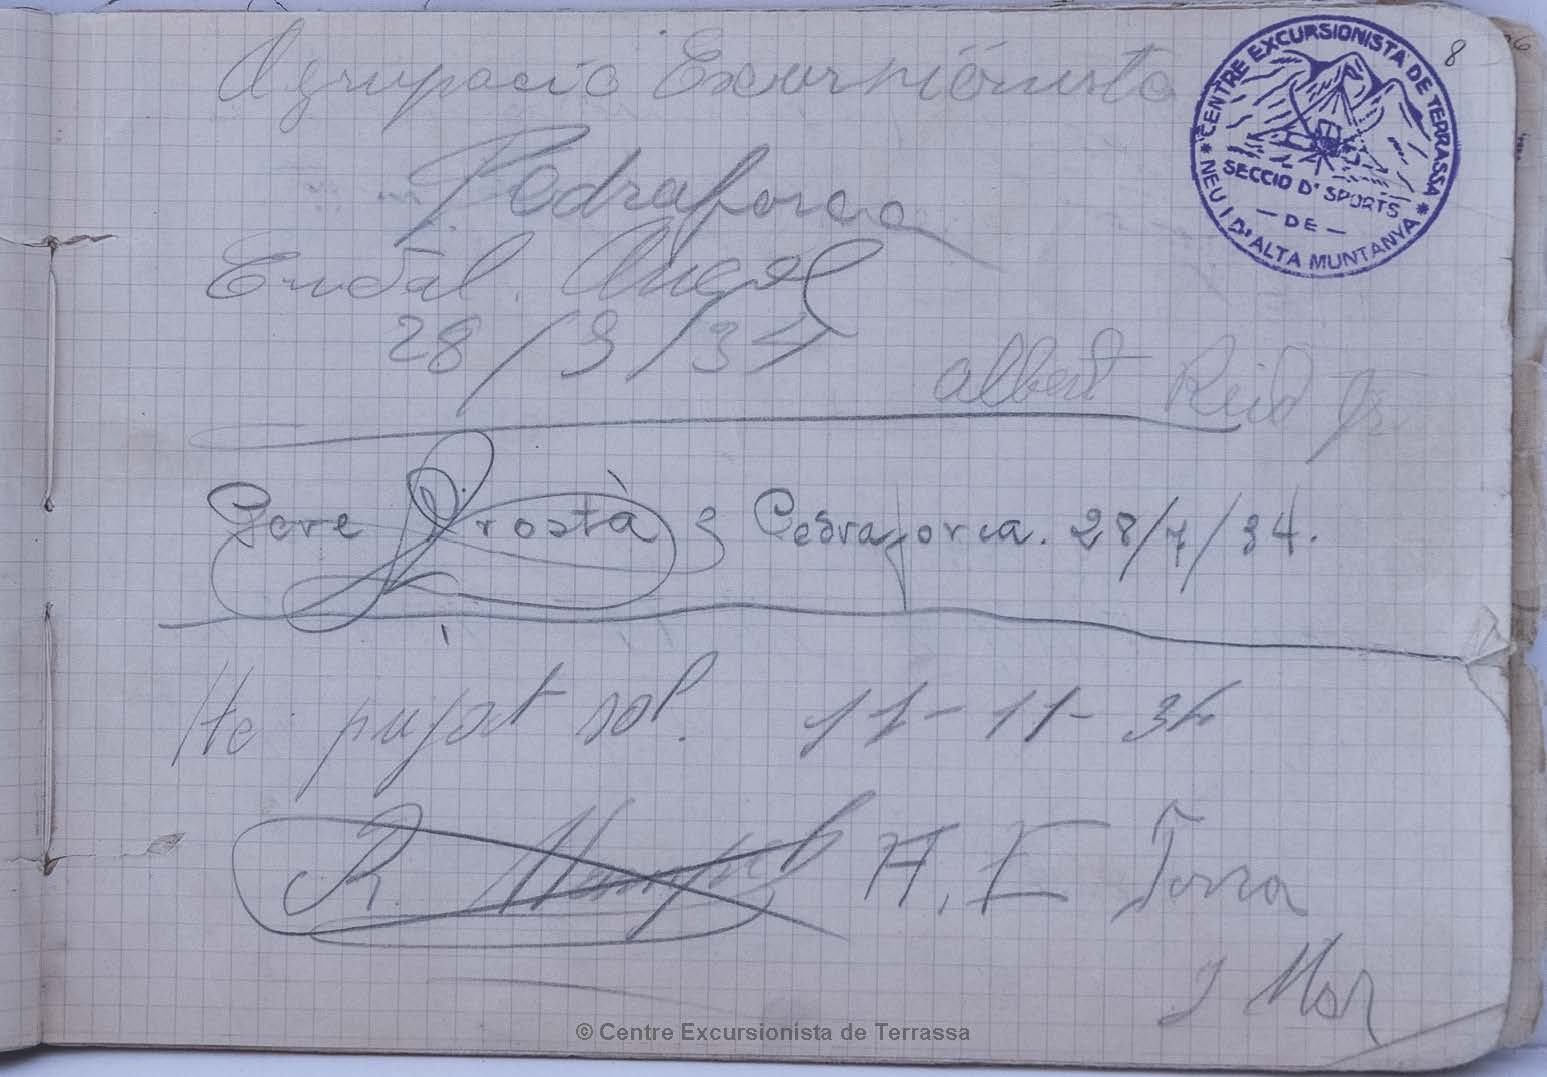 8
CENTRE EXCURSIONISTA DE TERRASSA
SECCIO D' SPORTS
- DE -
NEU I D'ALTA MUNTANYA
Agrupació Excursionista
Pedraforca
Angel
28/9/34
albert
Pere Prostà Pedraforca. 28/7/34.
He pujat sol. 11-11-34
R. A. E Terra
I Mar
© Centre Excursionista de Terrassa